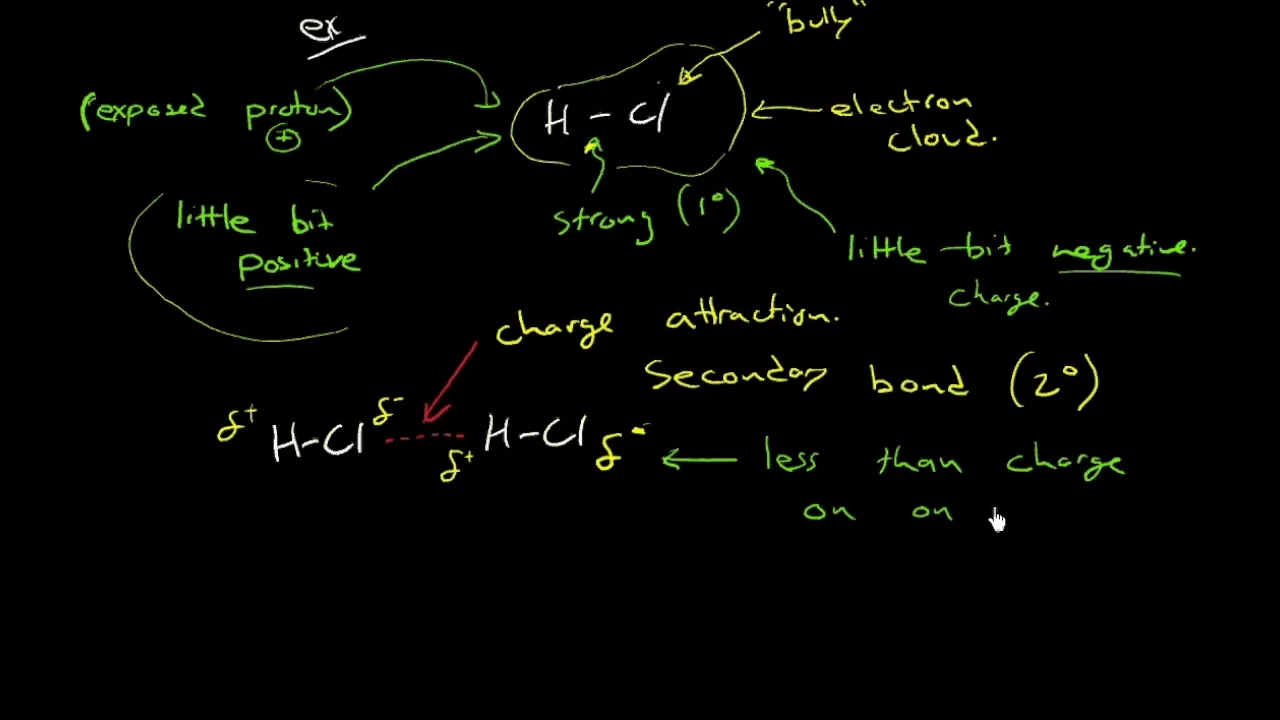 ex
"bully"
(exposed proton)
+
H - Cl
electron
cloud.
little bit
positive
strong (1°)
little bit negative.
charge.
charge attraction.
Secondary bond (2°)
δ+ H-Cl δ- δ+ H-Cl δ-
less than charge
on on